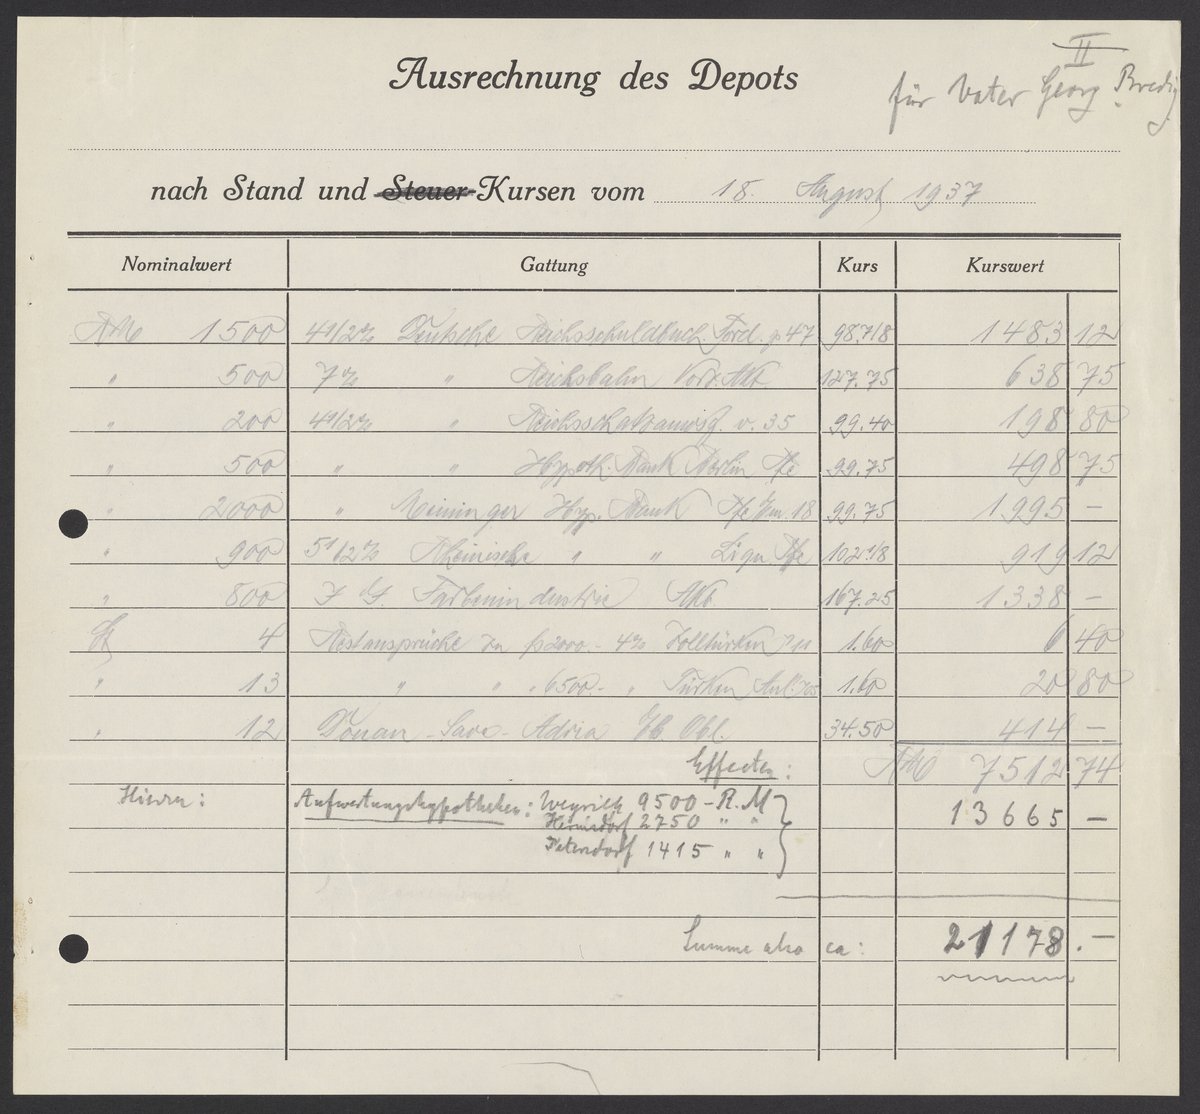 II
Ausrechnung des Depots
für Vater Georg Bredig
nach Stand und Steuer-Kursen vom 18. August 1937
Nominalwert Gattung Kurs Kurswert
RM 1500 4 1/2% Deutsche Reichsschuldbuch Ford. p 47 98.7/8 1483 12
" 500 7% " Reichsbahn Vorz. Akt 127.75 638 75
" 200 4 1/2% " Reichsschatzanwsg. v. 35 99.40 198 80
" 500 " " Hypoth. Bank Berlin Pfe 99.75 498 75
" 2000 " Meininger Hyp. Bank Pfe Em. 18 99.75 1995 –
" 900 5 1/2% Rheinische " " Liqu. Pfe 102 1/8 919 12
" 800 I. G. Farbenindustrie Akt 167.25 1338 –
4 Restansprüche zu 2000.- 4% Zolltürken 1.60 6 40
" 13 " " " 6500.- " Türken Anl. 1.60 20 80
" 12 Donau-Save-Adria Obl. 34.50 414 –
Effecten: RM 7512 74
Hierzu: Aufwertungshypotheken: Weyrich 9500 - R.M 13665 –
Hermsdorf 2750 " "
Petersdorf 1415 " "
Summe also ca: 21178.–